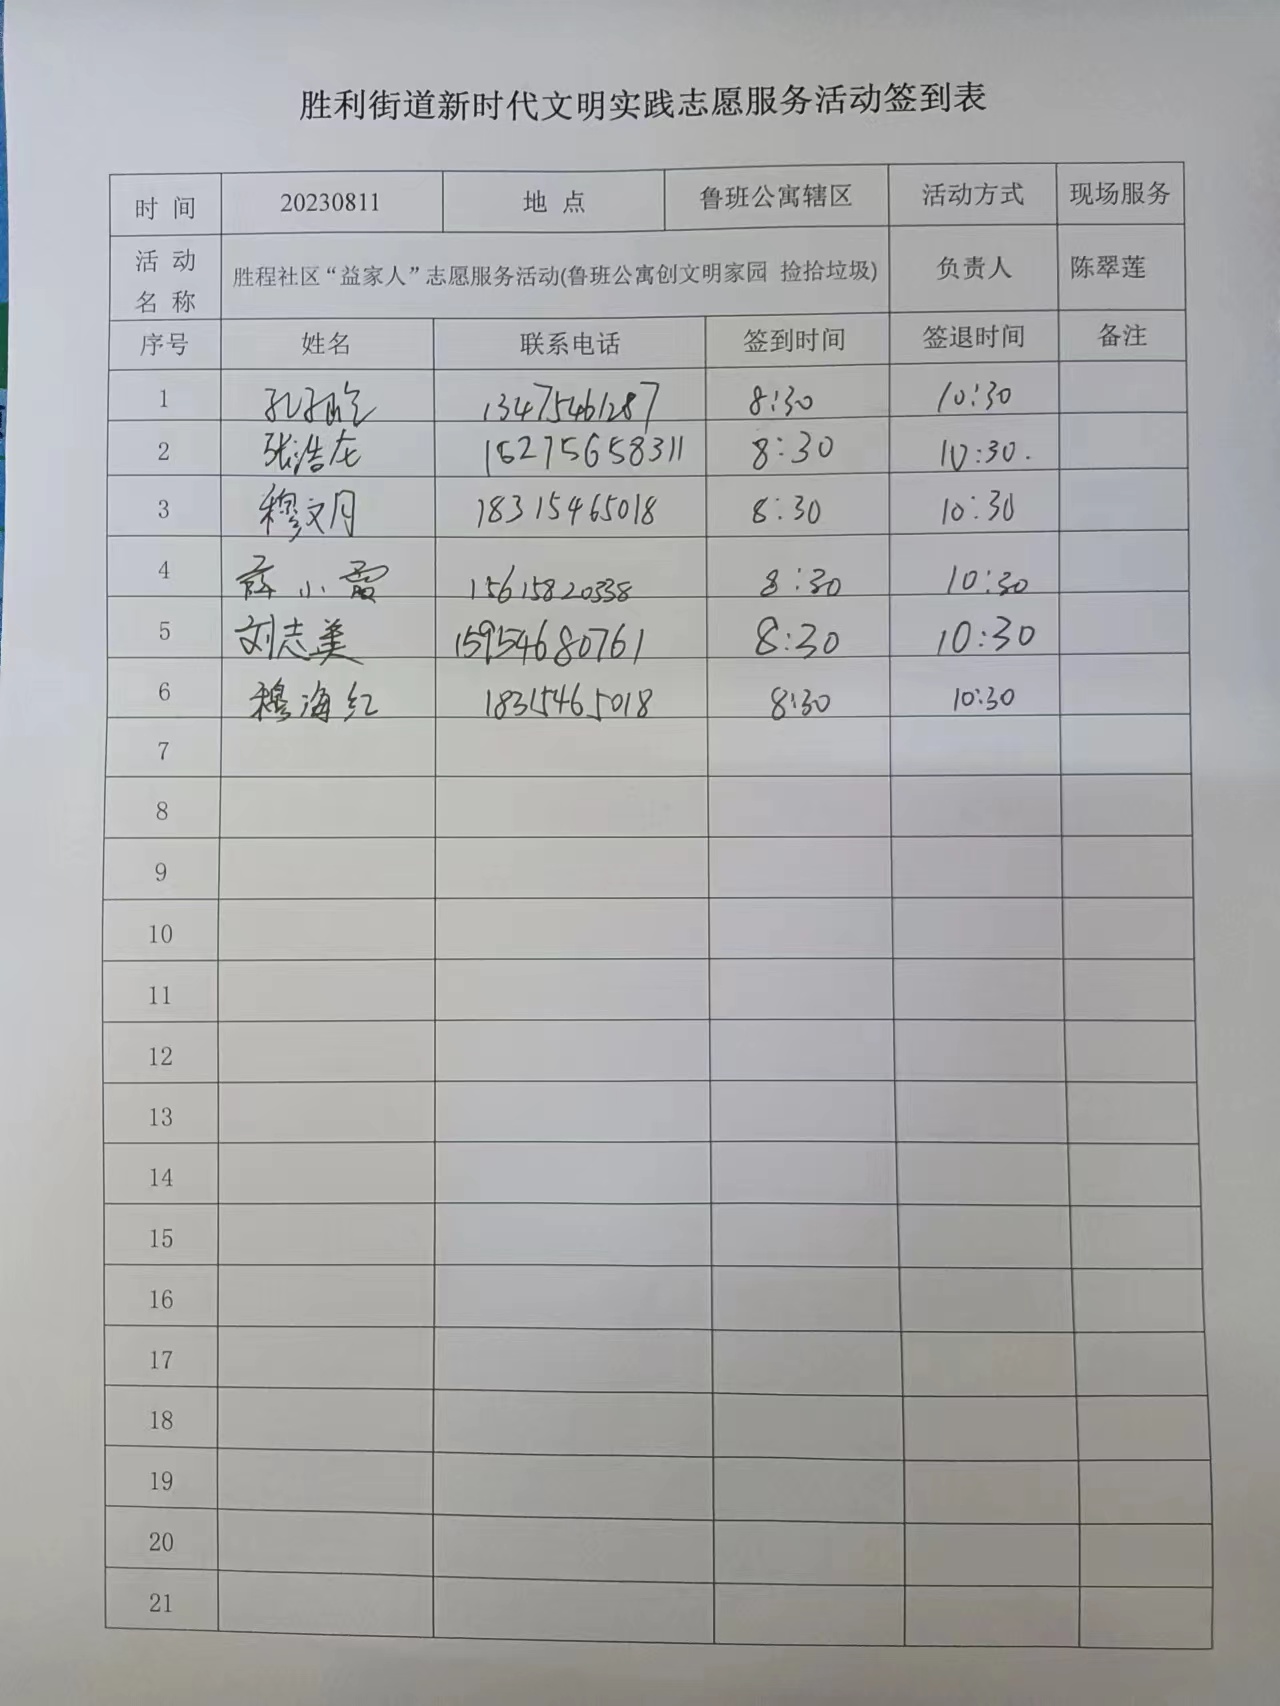 胜利街道新时代文明实践志愿服务活动签到表
时 间 20230811 地 点 鲁班公寓辖区 活动方式 现场服务
活 动 名 称 胜程社区“益家人”志愿服务活动(鲁班公寓创文明家园 捡拾垃圾) 负责人 陈翠莲
序号 姓名 联系电话 签到时间 签退时间 备注
1 13475461287 8:30 10:30
2 张浩龙 15275658311 8:30 10:30.
3 穆文月 18315465018 8:30 10:30
4 薛小霞 15615820338 8:30 10:30
5 刘志美 15954680761 8:30 10:30
6 穆海红 18315465018 8:30 10:30
7
8
9
10
11
12
13
14
15
16
17
18
19
20
21